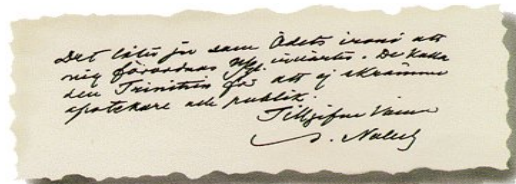 Det låter ju som Ödets ironi att
mig förordnas invärtes. De kalla
den Trinitrin för att ej skrämma
apotekare och publik.
Tillgifne Vännen
A. Nobel